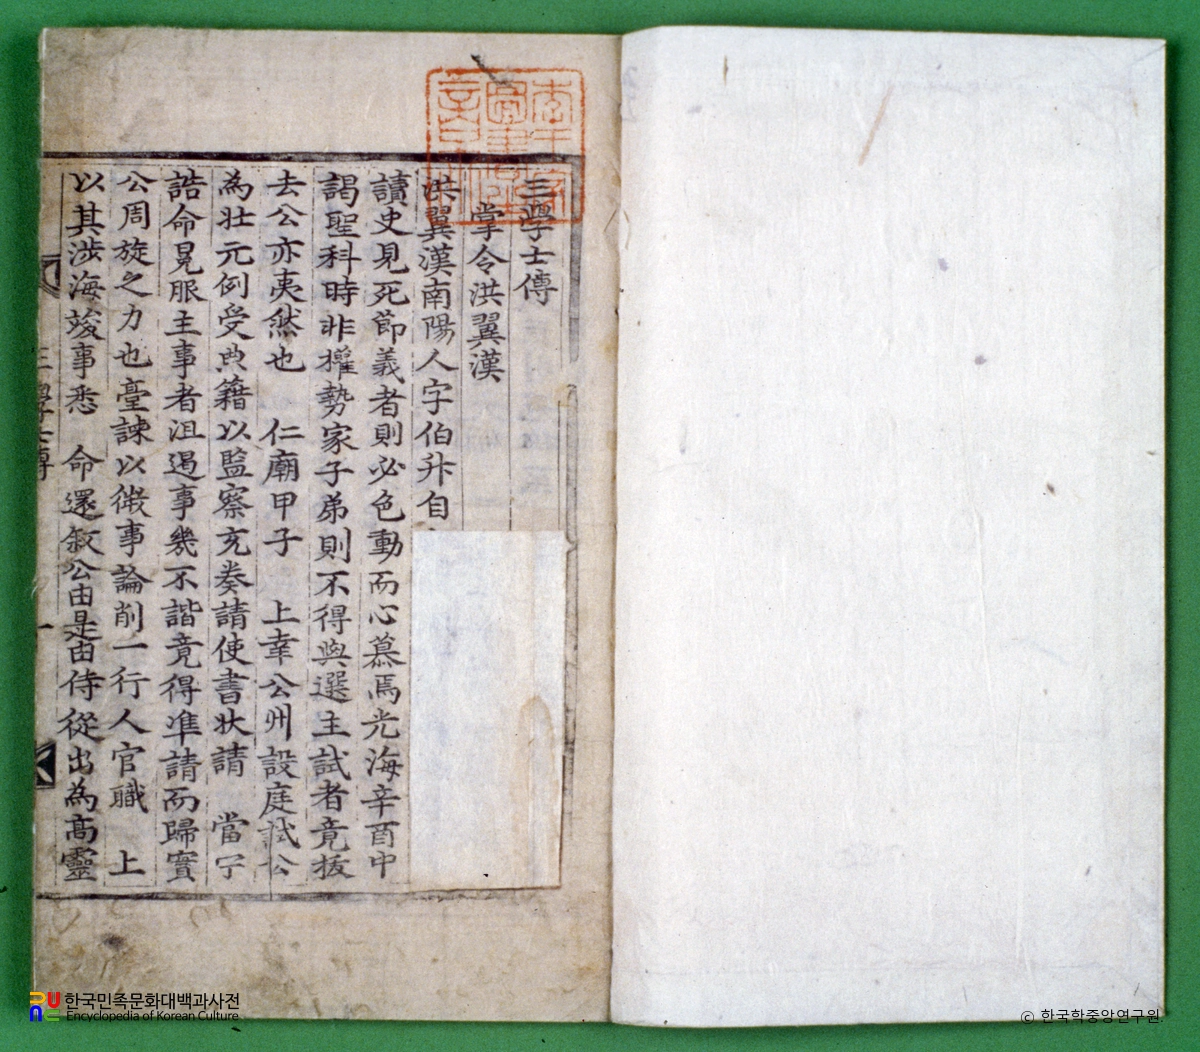 三學士傳
掌令洪翼漢
洪翼漢南陽人字伯升自
讀史見死節義者則必色動而心慕焉光海辛酉中
謁聖科時非權勢家子弟則不得與選主試者竟拔
去公亦夷然也 仁廟甲子 上幸公州設庭試公
為壯元例受典籍以監察充奏請使書狀請 當宁
誥命冕服主事者沮遏事幾不諧竟得準請而歸實
公周旋之力也臺諫以微事論削一行人官職 上
以其涉海竣事悉 命還敘公由是由侍從出為高靈
三學士傳
一
한국민족문화대백과사전
Encyclopedia of Korean Culture
ⓒ 한국학중앙연구원